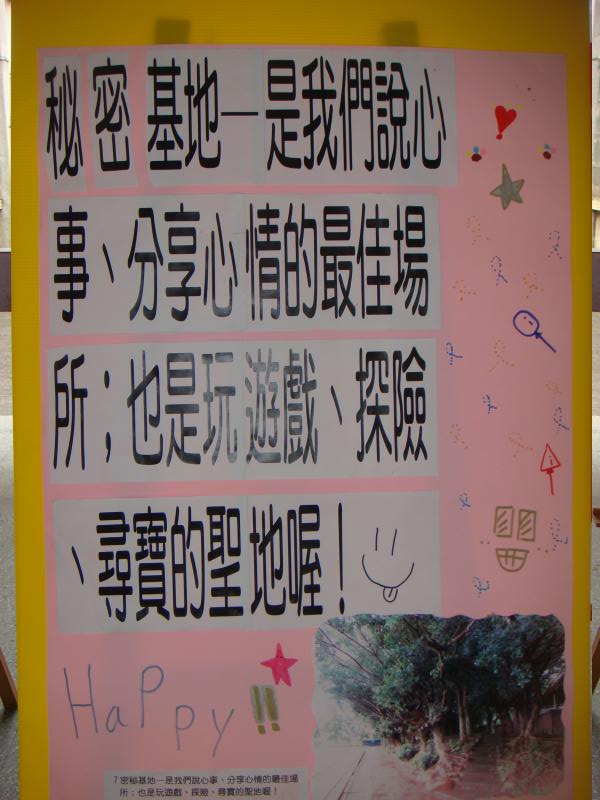 秘密基地—是我們說心
事、分享心情的最佳場
所；也是玩遊戲、探險
、尋寶的聖地喔！
HaPPy!!
7密秘基地—是我們說心事、分享心情的最佳場
所；也是玩遊戲、探險、尋寶的聖地喔！